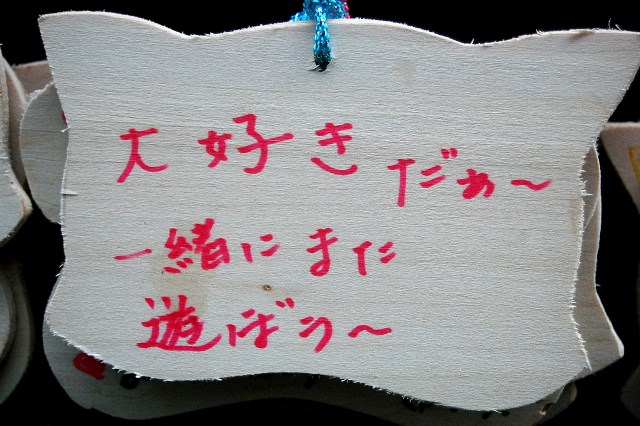 大好きだぁ〜
一緒にまた
遊ぼう〜